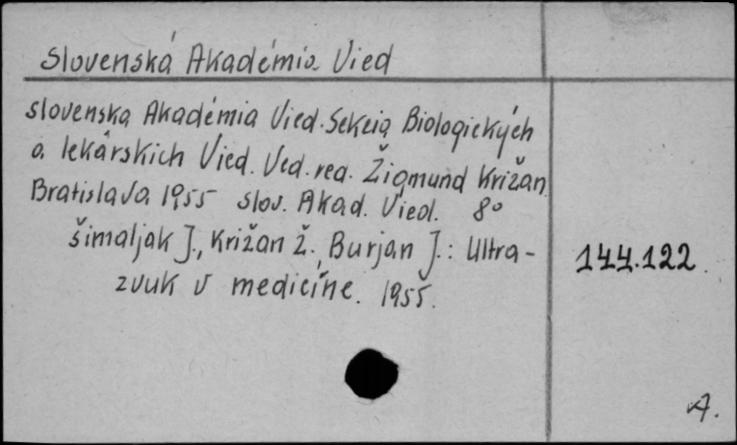 Slovenská Akadémia Vied
slovenska Akadémia Vied. Sekcia Biologických
a lekárskich Vied. Ved. red. Žigmund Križan
Bratislava 1955 slov. Akad. Vied. 8°
šimaljak J., Križan Ž., Burjan J.: Ultra-
zvuk v medicíne. 1955.
144.122
A.